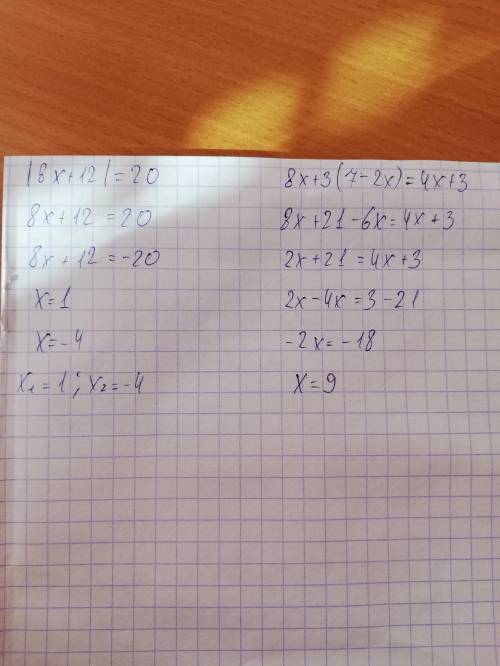 |8x+12|=20
8x+12=20
8x+12=-20
x=1
x=-4
x₁=1; x₂=-4
8x+3(7-2x)=4x+3
8x+21-6x=4x+3
2x+21=4x+3
2x-4x=3-21
-2x=-18
x=9